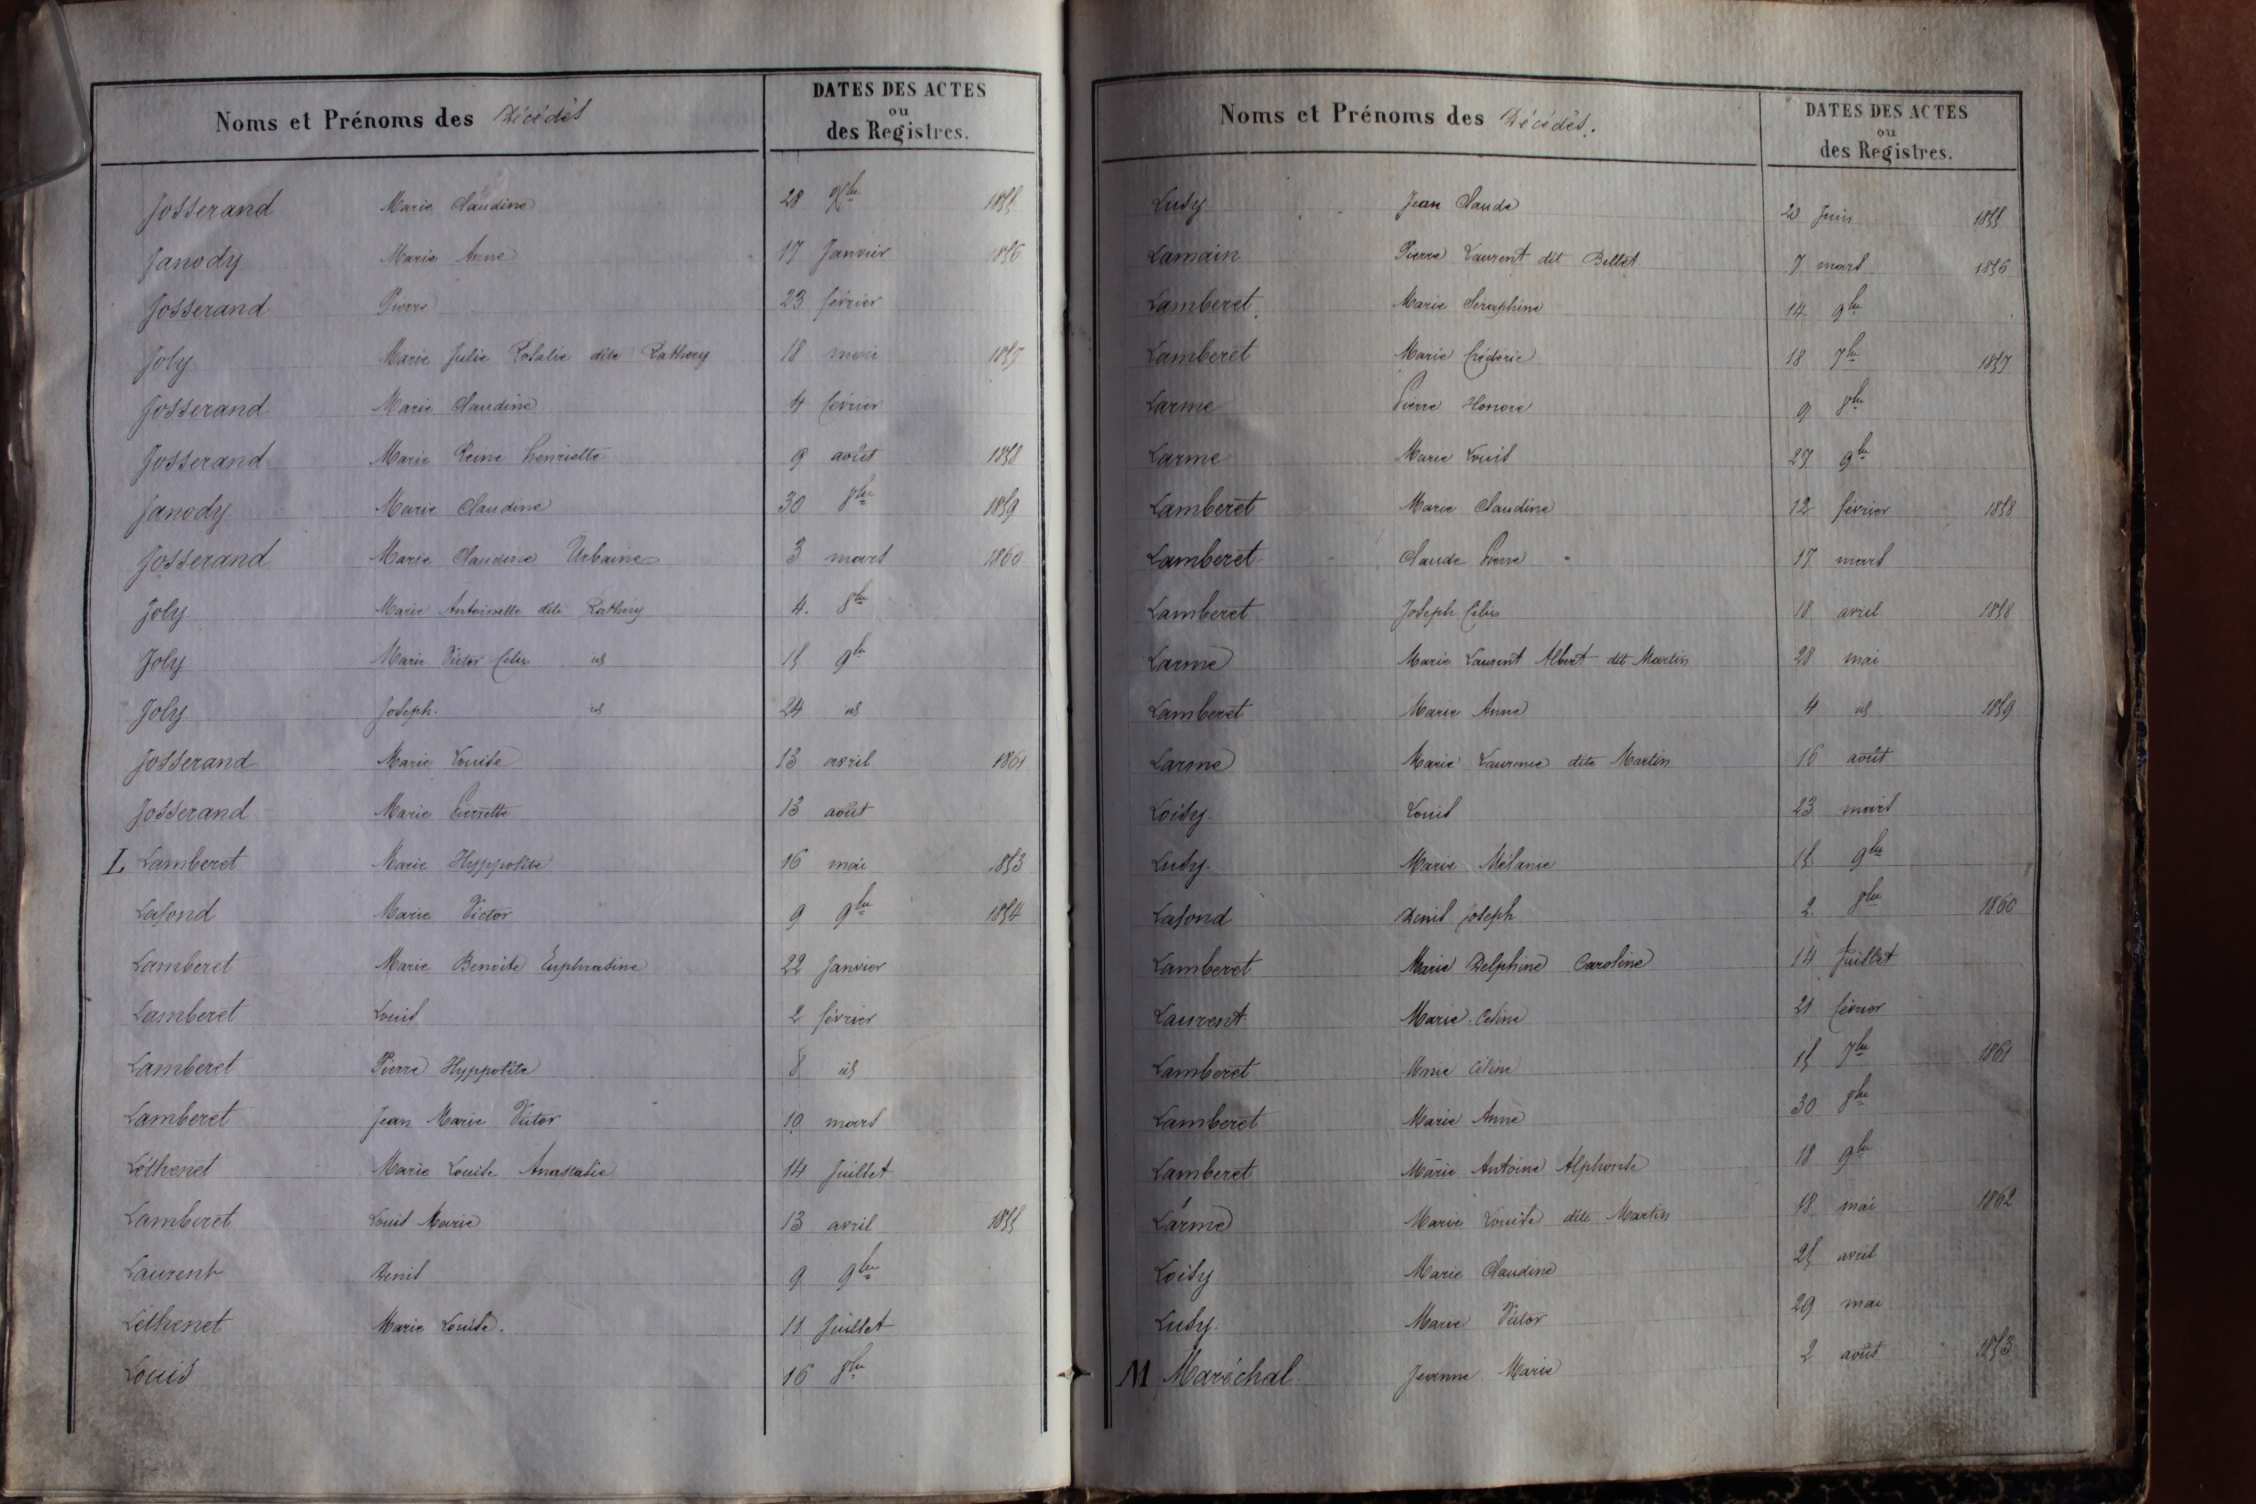 Noms et Prénoms des Décédés
DATES DES ACTES
ou
des Registres.
Josserand Marie Claudine 28 Xbre 1855
Janody Marie Anne 17 Janvier 1856
Josserand Pierre 23 février
Joly Marie Julie Rosalie dite Rathery 18 mai 1857
Josserand Marie Claudine 4 février
Josserand Marie Reine henriette 9 août 1858
Janody Marie Claudine 30 8bre 1859
Josserand Marie Claudine Urbaine 3 mars 1860
Joly Marie Antoinette dite Rathery 4. 8bre
Joly Marie Victor Célis id 15 9bre
Joly Joseph. id 24 id
Josserand Marie Louise 13 avril 1861
Josserand Marie Pierrette 13 août
L Lamberet Marie Hyppolite 16 mai 1853
Lafond Marie Victor 9 9bre 1854
Lamberet Marie Benoite Euphrasine 22 Janvier
Lamberet Louis 2 février
Lamberet Pierre Hyppolite 8 id
Lamberet Jean Marie Victor 19 mars
Léthenet Marie Louise Anastasie 14 Juillet
Lamberet Louis Marie 13 avril 1855
Laurent Denis 9 9bre
Léthenet Marie Louise. 15 Juillet
Louis 16 8bre
Noms et Prénoms des Décédés.
DATES DES ACTES
ou
des Registres.
Lusy Jean Claude 20 Juin 1855
Lamain Pierre Laurent dit Billet 7 mars 1856
Lamberet Marie Seraphine 14 9bre
Lamberet Marie Frédéric 18 7bre 1857
Larme Pierre Honore 9 8bre
Larme Marie Louis 27 9bre
Lamberet Marie Claudine 12 février 1858
Lamberet Claude Pierre 17 mars
Lamberet Joseph Célis 18 avril 1858
Larme Marie Laurent Albert dit Martin 28 mai
Lamberet Marie Anne 4 id 1859
Larme Marie Laurence dite Martin 16 août
Loisy Louis 23 mars
Lusy. Marie Mélanie 15 9bre
Lafond Denis Joseph 2. 8bre 1860
Lamberet Marie Delphine Caroline 14 Juillet
Laurent Marie Celine 21 février
Lamberet Marie Céline 15 7bre 1861
Lamberet Marie Anne 30 8bre
Lamberet Marie Antoine Alphonse 18 9bre
Larme Marie Louise dite Martin 18 mai 1862
Loisy Marie Claudine 25 avril
Lusy. Marie Victor 29 mai
M Maréchal Jeanne Marie 2 août 1853